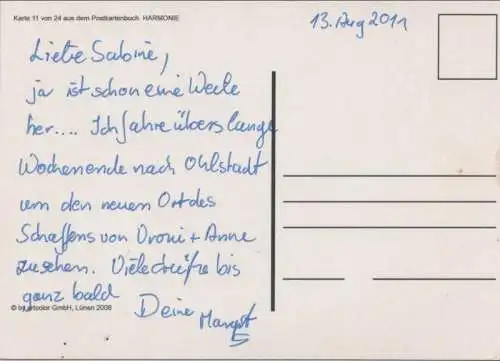 Karte 11 von 24 aus dem Postkartenbuch HARMONIE
13. Aug 2011
Liebe Sabine,
ja ist schon eine Weile
her.... Ich fahre übers lange
Wochenende nach Ohlstadt
um den neuen Ort des
Schaffens von Vroni + Anne
zu sehen. Viele Grüße bis
ganz bald
GmbH, Lünen 2008
Deine Margot